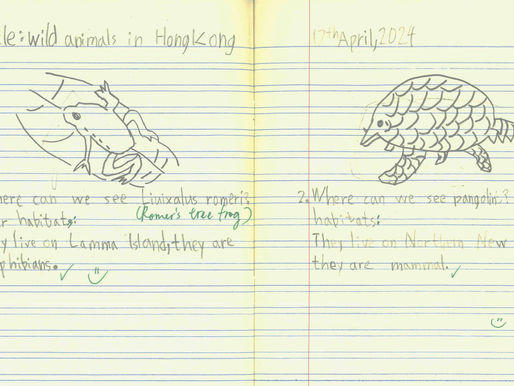 le: wild animals in HongKong
17th April, 2024
here can we see Liuixalus romeri?
(Romer's tree frog)
r habitats:
y live on Lamma Island, they are
phibians.
2. Where can we see pangolin?
habitats:
They live on Northern New
they are mammal.